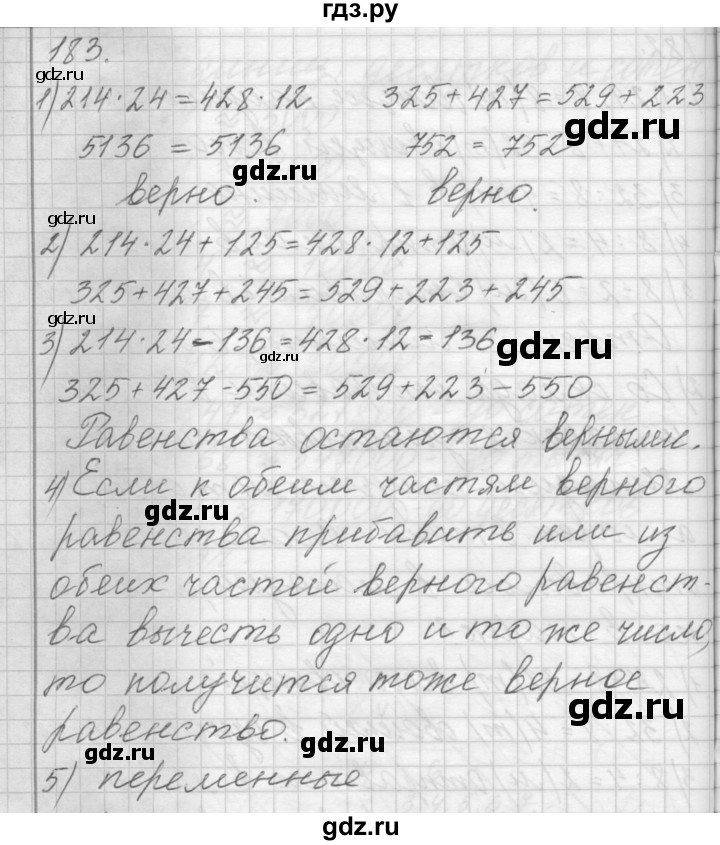 гдз.ру
183.
gdz.ru
1) 214·24=428·12 325+427=529+223
gdz.ru
5136 = 5136 752 = 752
gdz.ru
верно. верно.
gdz.ru
2) 214·24+125=428·12+125
325+427+245=529+223+245
gdz.ru
3) 214·24-136=428·12-136
gdz.ru
gdz.ru
325+427-550=529+223-550
Равенства остаются верными.
4) Если к обеим частям верного
gdz.ru
равенства прибавить или из
обеих частей верного равенст-
ва вычесть одно и то же число,
то получится тоже верное
gdz.ru
равенство.
gdz.ru
gdz.ru
5) переменные
gdz.ru